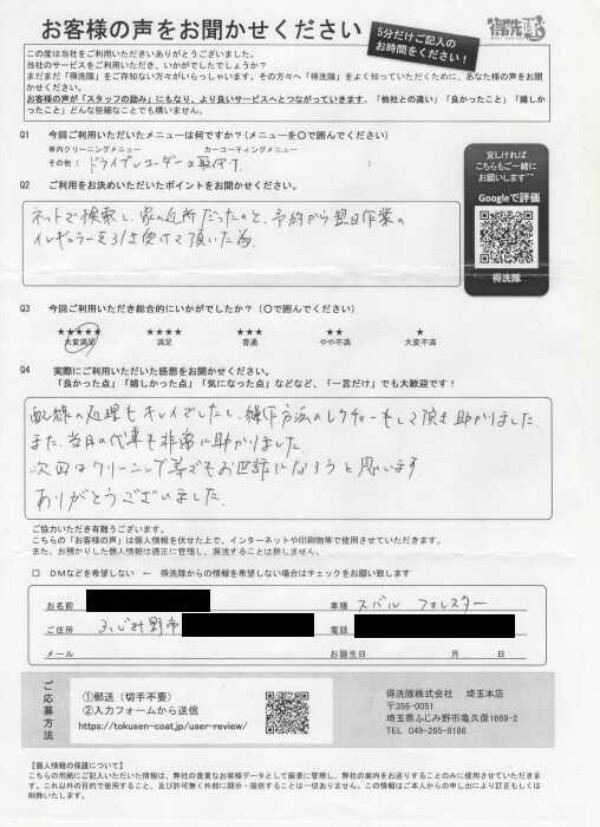 お客様の声をお聞かせください
5分だけご記入の
お時間をください！
得洗隊
この度は当社をご利用いただきありがとうございました。
当社のサービスをご利用いただき、いかがでしたでしょうか？
まだまだ「得洗隊」をご存知ない方々がいらっしゃいます。その方々へ「得洗隊」をよく知っていただくために、あなた様の声をお聞かせください。
お客様の声が「スタッフの励み」にもなり、より良いサービスへとつながっていきます。「他社との違い」「良かったこと」「嬉しかったこと」どんな些細なことでも構いません。
Q1 今回ご利用いただいたメニューは何ですか？(メニューを〇で囲んでください)
車内クリーニングメニュー カーコーティングメニュー
その他： ドライブレコーダーの取付け
Q2 ご利用をお決めいただいたポイントをお聞かせください。
ネットで検索し、家の近所だったのと、予約から翌日作業の
イレギュラーを引き受けて頂いた為
宜しければ
こちらもご一緒に
お願いします^^
Googleで評価
得洗隊
Q3 今回ご利用いただき総合的にいかがでしたか？ (〇で囲んでください)
★★★★★ ★★★★ ★★★ ★★ ★
大変満足 満足 普通 やや不満 大変不満
Q4 実際にご利用いただいた感想をお聞かせください。
「良かった点」「嬉しかった点」「気になった点」などなど、「一言だけ」でも大歓迎です！
配線の処理もキレイでしたし、操作方法のレクチャーもして頂き助かりました。
また、当日の代車も非常に助かりました。
次回はクリーニング等でもお世話になろうと思います。
ありがとうございました。
ご協力いただき有難うございます。
こちらの「お客様の声」は個人情報を伏せた上で、インターネットや印刷物等で使用させていただきます。
また、お預かりした個人情報は適正に管理し、漏洩することは致しません。
□ DMなどを希望しない ← 得洗隊からの情報を希望しない場合はチェックをお願い致します
お名前 車種 スバル フォレスター
ご住所 ふじみ野市 電話
メール お誕生日 月 日
ご応募方法
①郵送（切手不要）
②入力フォームから送信
https://tokusen-coat.jp/user-review/
得洗隊株式会社 埼玉本店
〒356-0051
埼玉県ふじみ野市亀久保1669-2
TEL 049-265-8186
【個人情報の保護について】
こちらの用紙にご記入いただいた情報は、弊社の貴重なお客様データとして厳重に管理し、弊社の案内をお送りすることのみに使用させていただきます。これ以外の目的で使用すること、及び許可無く外部に開示・提供することは一切ありません。この情報はご本人からの申し出により訂正もしくは削除いたします。